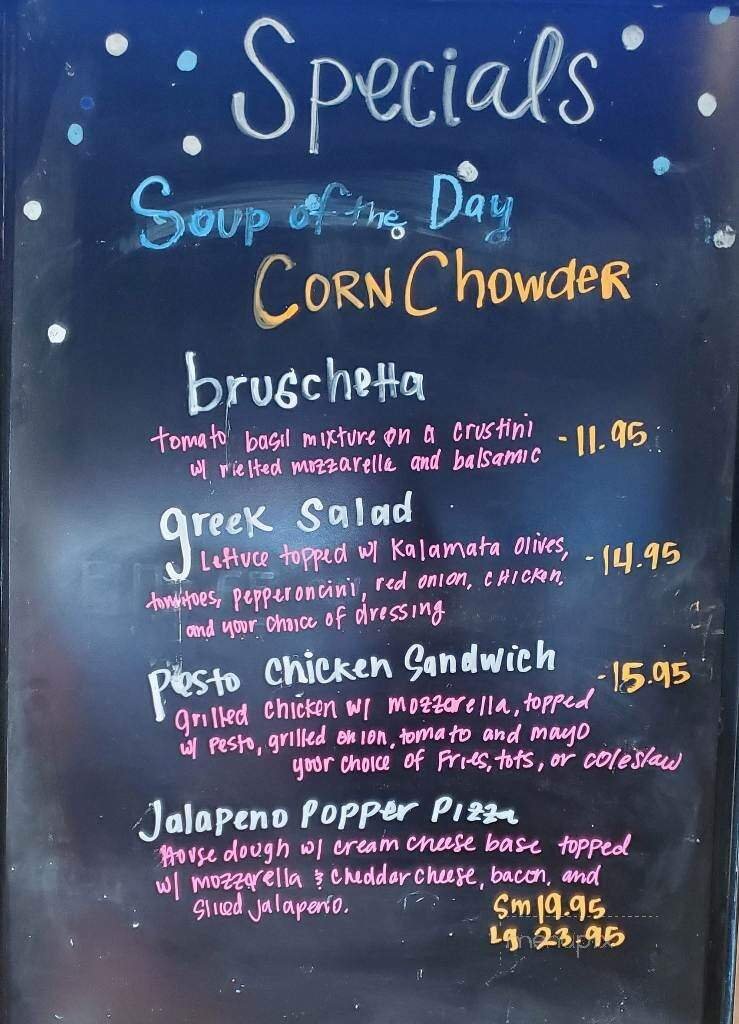 Specials
Soup of the Day
CORN Chowder
bruschetta
tomato basil mixture on a crustini - 11.95
w/ melted mozzarella and balsamic
greek salad
Lettuce topped w/ Kalamata olives, - 14.95
tomatoes, pepperoncini, red onion, chicken,
and your choice of dressing
Pesto Chicken Sandwich - 15.95
grilled chicken w/ mozzarella, topped
w/ pesto, grilled onion, tomato and mayo
your choice of Fries, tots, or coleslaw
Jalapeno Popper Pizza
House dough w/ cream cheese base topped
w/ mozzarella & cheddar cheese, bacon, and
sliced jalapeno.
Sm 19.95
Lg 23.95
menupix